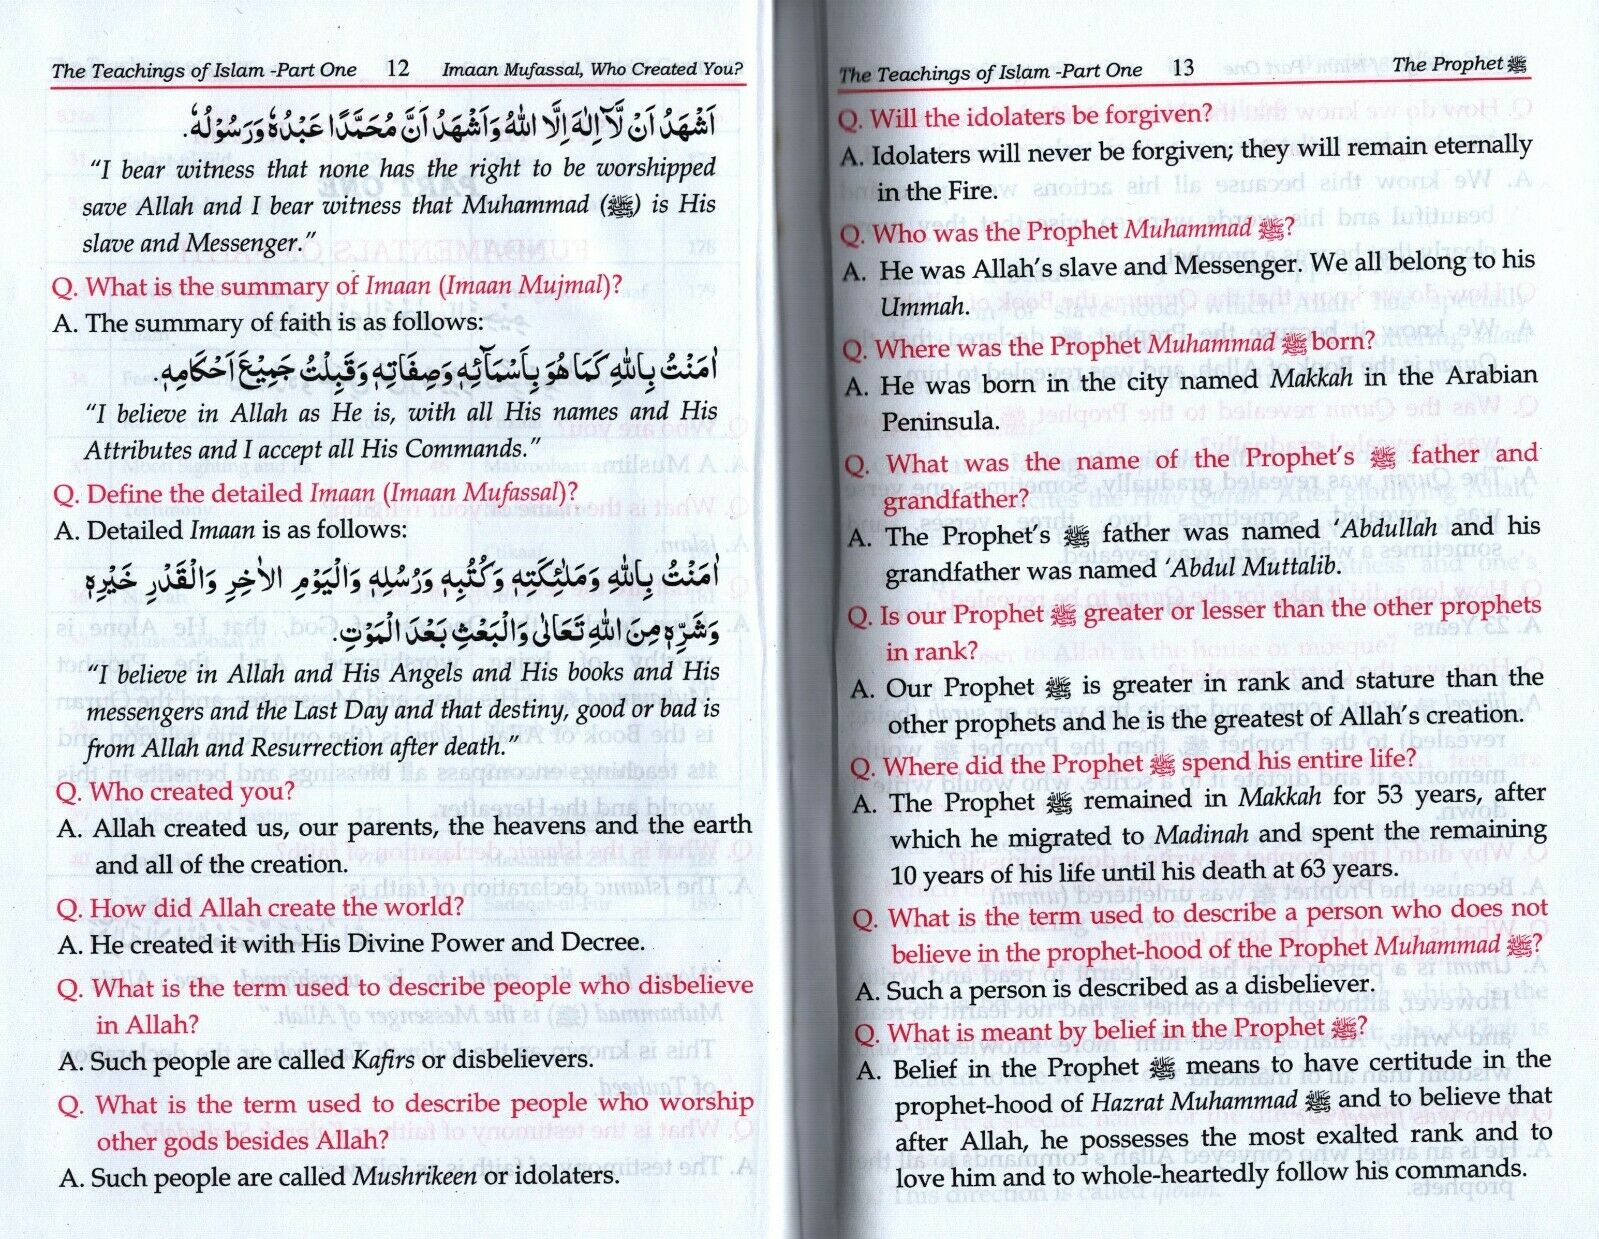 The Teachings of Islam -Part One 12 Imaan Mufassal, Who Created You?
اَشْهَدُ اَنْ لَّآ اِلٰهَ اِلَّا اللّٰهُ وَاَشْهَدُ اَنَّ مُحَمَّدًا عَبْدُهٗ وَرَسُوْلُهٗ.
"I bear witness that none has the right to be worshipped
save Allah and I bear witness that Muhammad (ﷺ) is His
slave and Messenger."
Q. What is the summary of Imaan (Imaan Mujmal)?
A. The summary of faith is as follows:
اٰمَنْتُ بِاللّٰهِ كَمَا هُوَ بِاَسْمَآئِهٖ وَصِفَاتِهٖ وَقَبِلْتُ جَمِيْعَ اَحْكَامِهٖ.
"I believe in Allah as He is, with all His names and His
Attributes and I accept all His Commands."
Q. Define the detailed Imaan (Imaan Mufassal)?
A. Detailed Imaan is as follows:
اٰمَنْتُ بِاللّٰهِ وَمَلٰئِكَتِهٖ وَكُتُبِهٖ وَرُسُلِهٖ وَالْيَوْمِ الْاٰخِرِ وَالْقَدْرِ خَيْرِهٖ
وَشَرِّهٖ مِنَ اللّٰهِ تَعَالٰى وَالْبَعْثِ بَعْدَ الْمَوْتِ.
"I believe in Allah and His Angels and His books and His
messengers and the Last Day and that destiny, good or bad is
from Allah and Resurrection after death."
Q. Who created you?
A. Allah created us, our parents, the heavens and the earth
and all of the creation.
Q. How did Allah create the world?
A. He created it with His Divine Power and Decree.
Q. What is the term used to describe people who disbelieve
in Allah?
A. Such people are called Kafirs or disbelievers.
Q. What is the term used to describe people who worship
other gods besides Allah?
A. Such people are called Mushrikeen or idolaters.
The Teachings of Islam -Part One 13 The Prophet ﷺ
Q. Will the idolaters be forgiven?
A. Idolaters will never be forgiven; they will remain eternally
in the Fire.
Q. Who was the Prophet Muhammad ﷺ?
A. He was Allah's slave and Messenger. We all belong to his
Ummah.
Q. Where was the Prophet Muhammad ﷺ born?
A. He was born in the city named Makkah in the Arabian
Peninsula.
Q. What was the name of the Prophet's ﷺ father and
grandfather?
A. The Prophet's ﷺ father was named 'Abdullah and his
grandfather was named 'Abdul Muttalib.
Q. Is our Prophet ﷺ greater or lesser than the other prophets
in rank?
A. Our Prophet ﷺ is greater in rank and stature than the
other prophets and he is the greatest of Allah's creation.
Q. Where did the Prophet ﷺ spend his entire life?
A. The Prophet ﷺ remained in Makkah for 53 years, after
which he migrated to Madinah and spent the remaining
10 years of his life until his death at 63 years.
Q. What is the term used to describe a person who does not
believe in the prophet-hood of the Prophet Muhammad ﷺ?
A. Such a person is described as a disbeliever.
Q. What is meant by belief in the Prophet ﷺ?
A. Belief in the Prophet ﷺ means to have certitude in the
prophet-hood of Hazrat Muhammad ﷺ and to believe that
after Allah, he possesses the most exalted rank and to
love him and to whole-heartedly follow his commands.